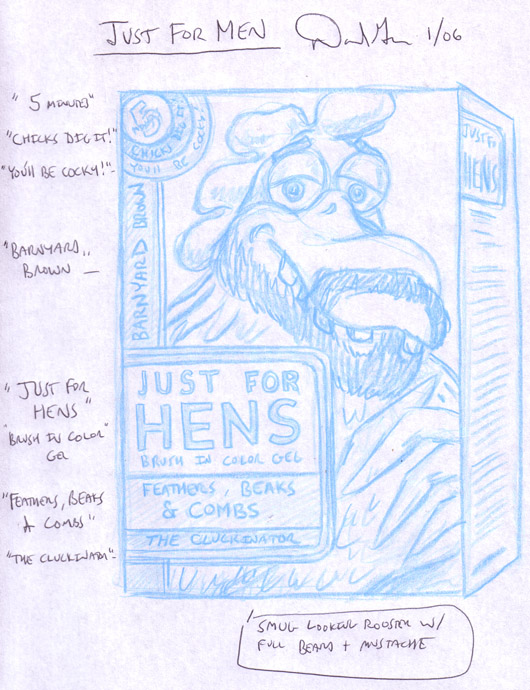 JUST FOR MEN
1/06
"5 MINUTES"
"CHICKS DIG IT!"
"YOU'LL BE COCKY!"-
"BARNYARD
BROWN -
"JUST FOR
HENS"
"BRUSH IN COLOR"
GEL
"FEATHERS, BEAKS
& COMBS"
"THE CLUCKINATOR"-
5
CHICKS DIG IT!
YOU'LL BE COCKY!
BARNYARD BROWN
JUST FOR
HENS
BRUSH IN COLOR GEL
FEATHERS, BEAKS
& COMBS
THE CLUCKINATOR
JUST FOR
HENS
SMUG LOOKING ROOSTER W/
FULL BEARD + MUSTACHE